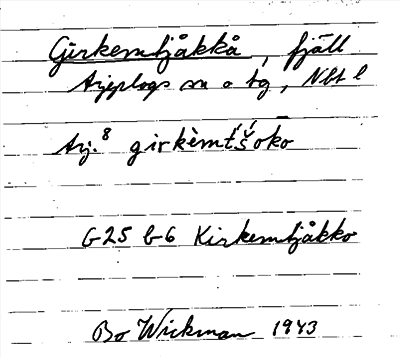 Girkemtjåkkå, fjäll
Arjeplogs sn o tg, Nbt l
Arj.⁸ girkèmt́š́ōko
G25 b-6 Kirkemtjåkko
Bo Wickman 1943